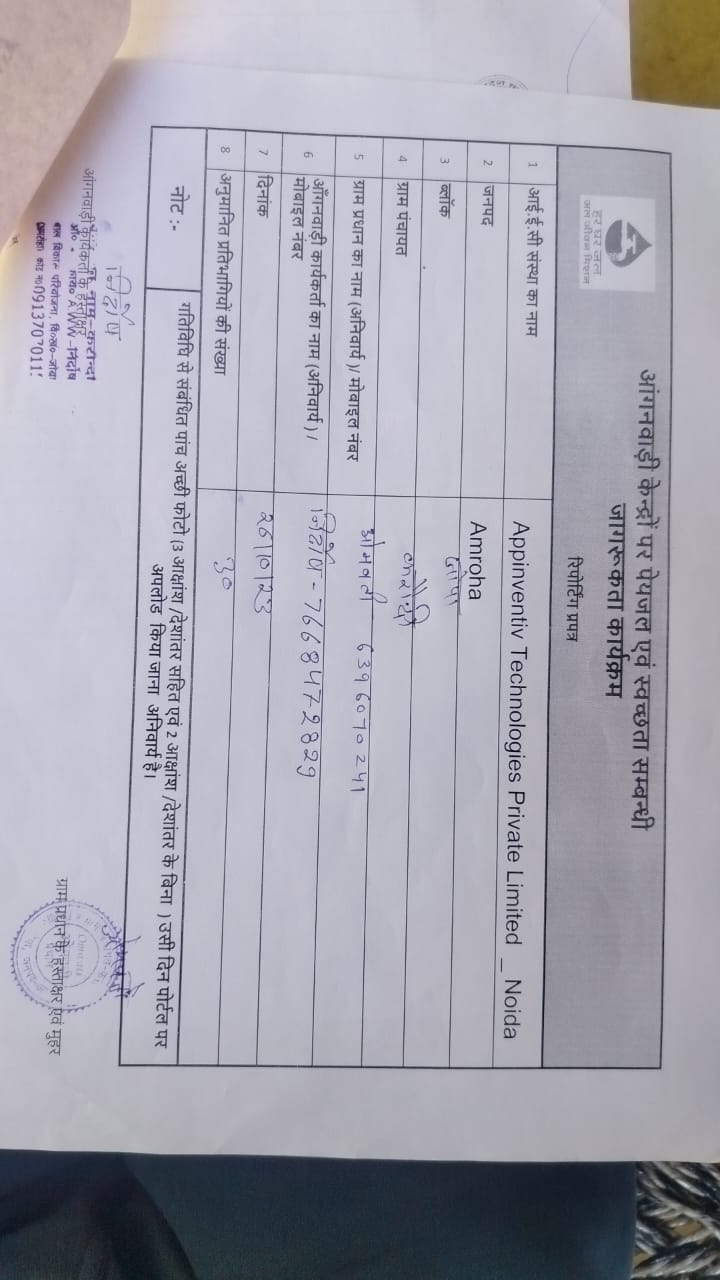 हर घर जल
जल जीवन मिशन
आंगनवाड़ी केन्द्रों पर पेयजल एवं स्वच्छता सम्बन्धी
जागरूकता कार्यक्रम
रिपोर्टिंग प्रपत्र
1 आई.ई.सी संस्था का नाम Appinventiv Technologies Private Limited _ Noida
2 जनपद Amroha
3 ब्लॉक जोया
4 ग्राम पंचायत
5 ग्राम प्रधान का नाम (अनिवार्य )/ मोबाइल नंबर ओमवती 6396070241
6 आँगनवाड़ी कार्यकर्ता का नाम (अनिवार्य ) /
मोबाइल नंबर निर्दोष - 7668472829
7 दिनांक
8 अनुमानित प्रतिभागियों की संख्या ३०
नोट :- गतिविधि से संबंधित पांच अच्छी फोटो (3 आक्षांश /देशांतर सहित एवं 2 आक्षांश /देशांतर के बिना ) उसी दिन पोर्टल पर
अपलोड किया जाना अनिवार्य है।
निर्दोष
आंगनवाड़ी कार्यकर्ता के हस्ताक्षर
AWW-निर्दोष
बाल विकास परियोजना, वि०ख०-जोया
ओमवती
ग्राम प्रधान के हस्ताक्षर एवं मुहर